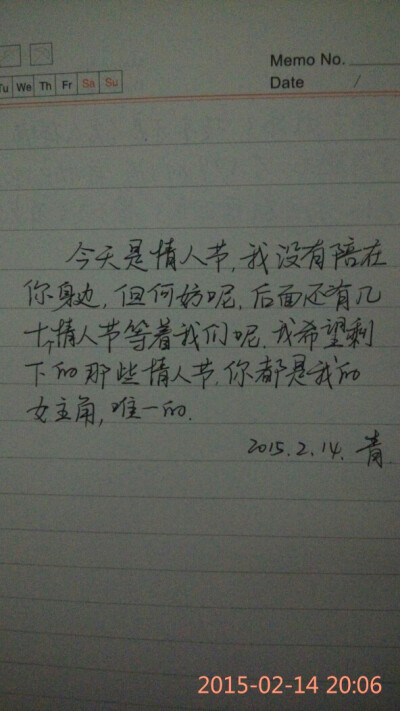 Memo No.
Tu We Th Fr Sa Su
Date /
今天是情人节,我没有陪在
你身边,但何妨呢,后面还有几
十个情人节等着我们呢,我希望剩
下的那些情人节,你都是我的
女主角,唯一的.
2015.2.14. 青
2015-02-14 20:06